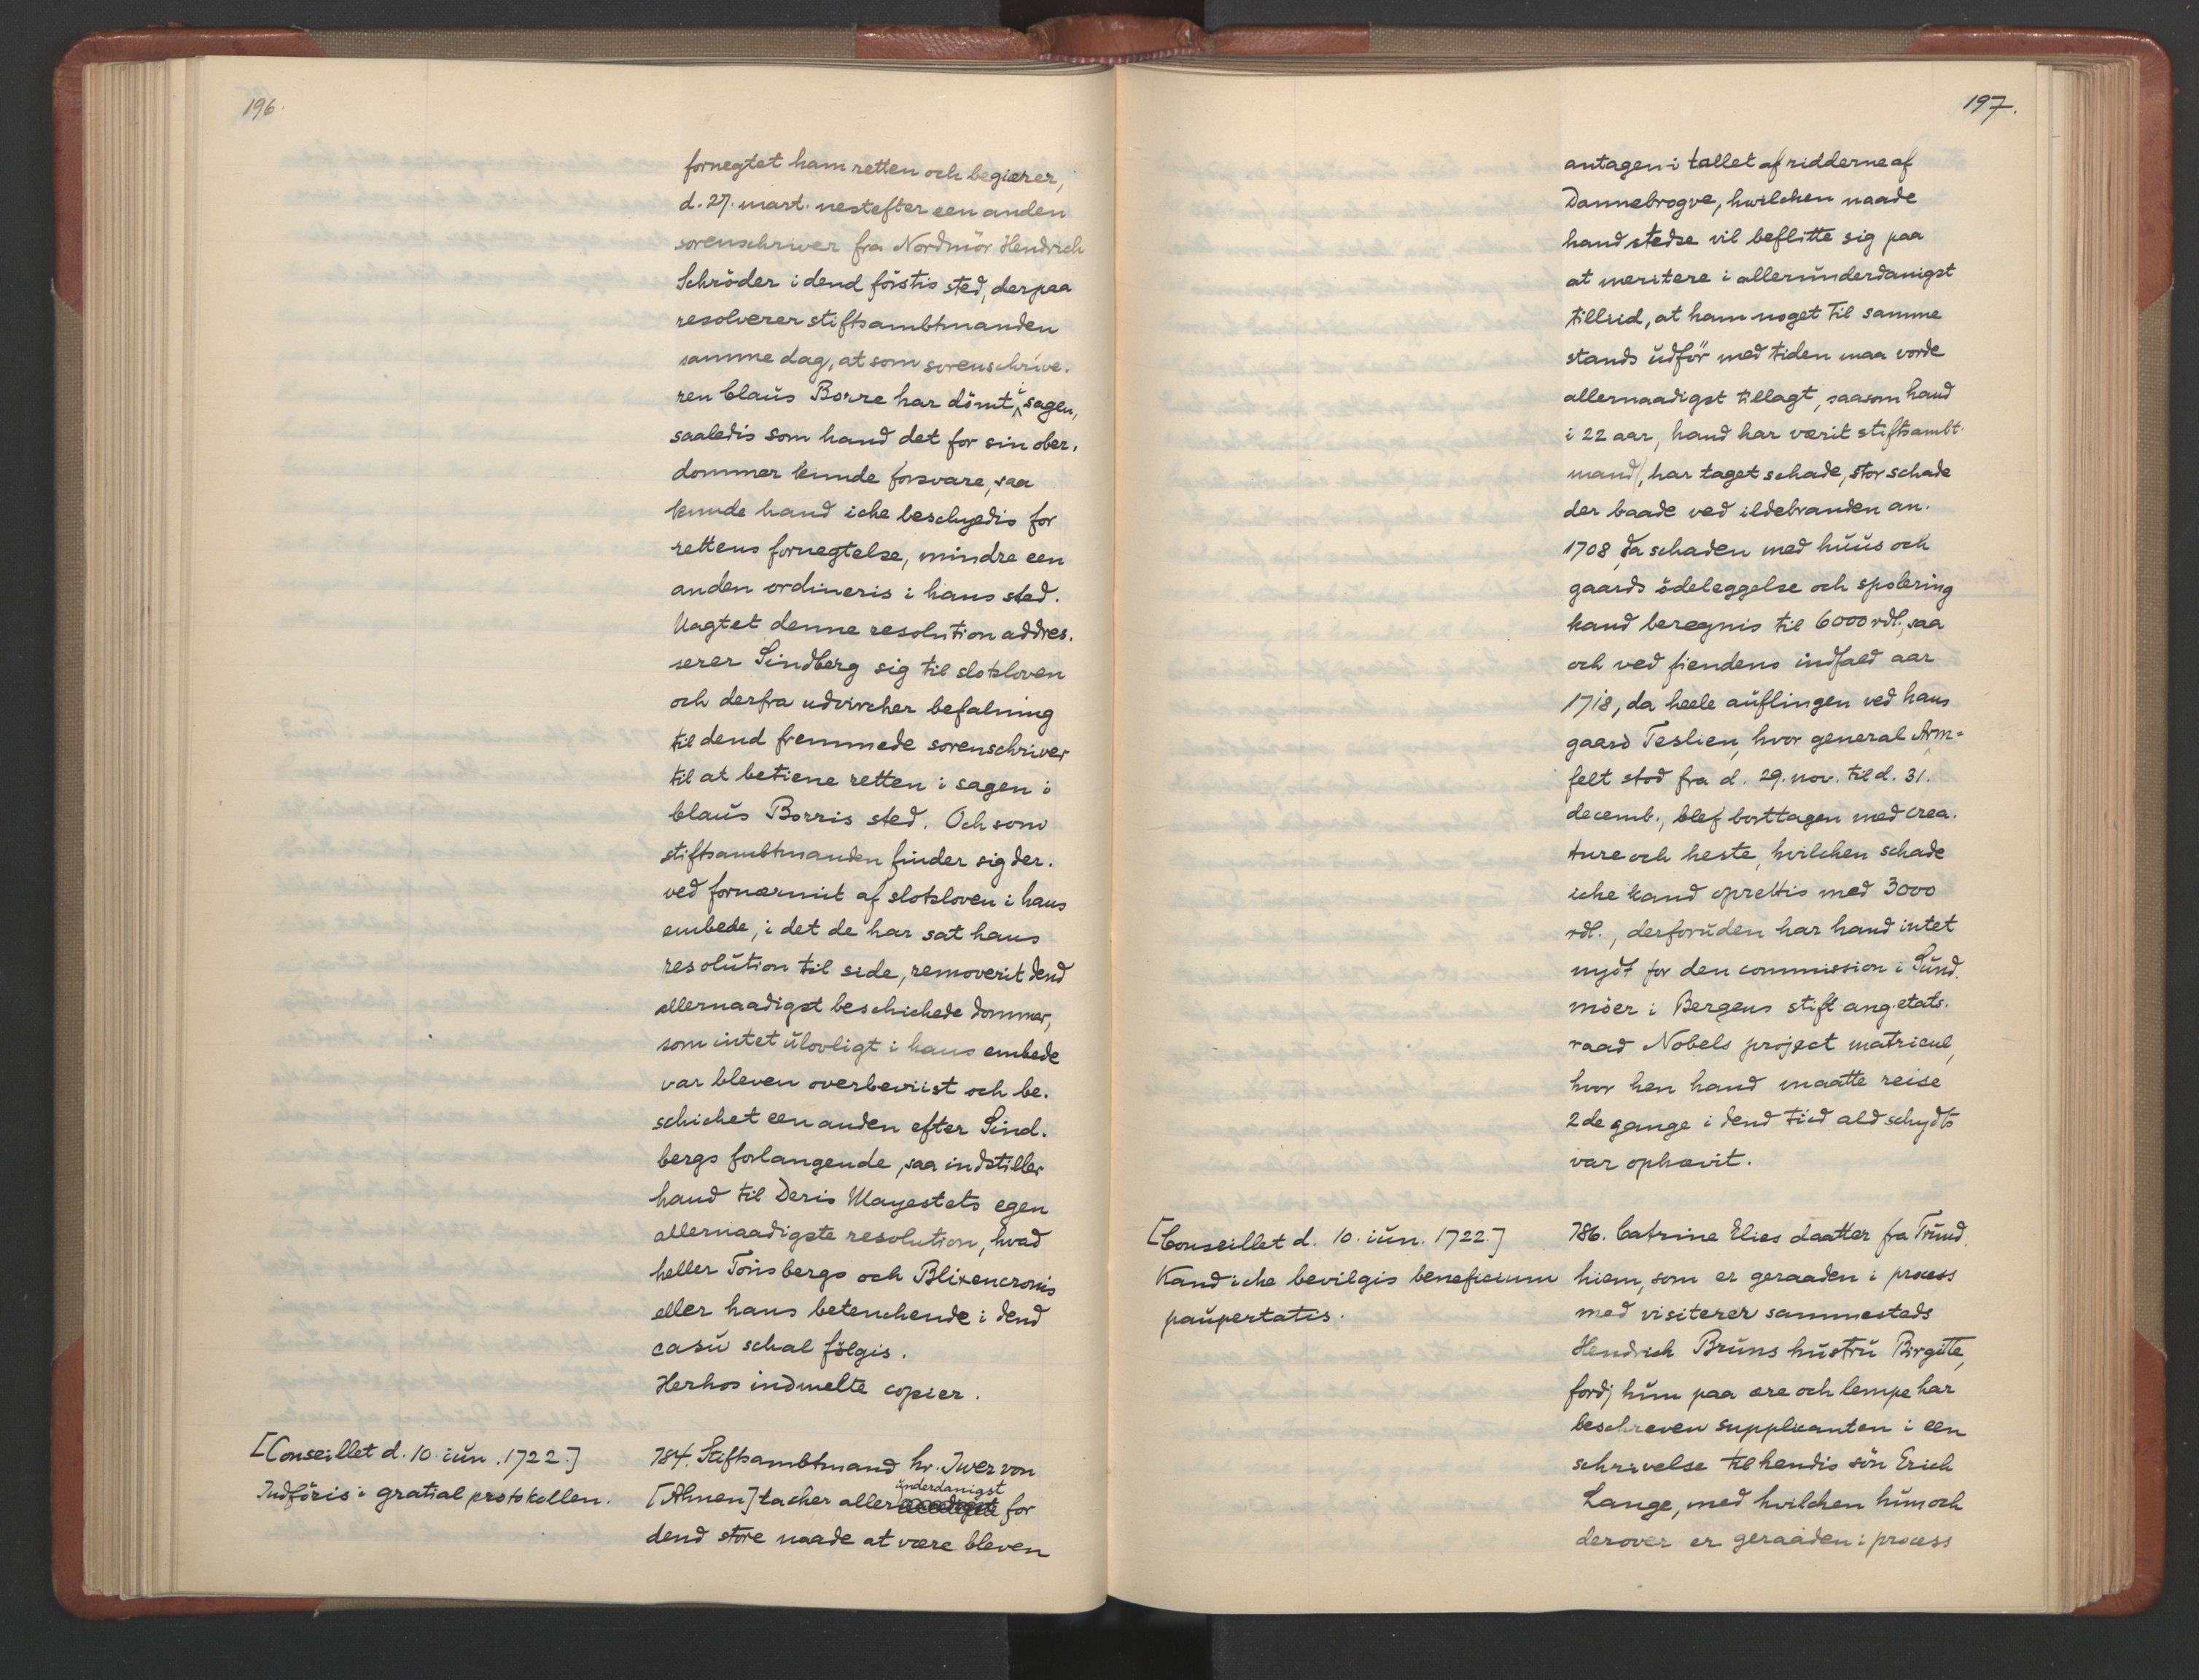 196.
fornegtet ham retten och begiærer,
d. 27. mart. nestefter een anden
sorenschriver fra Nordmör Hendrich
Schröder i dend förstis sted, derpaa
resolverer stiftsambtmanden
samme dag, at som sorenschrive-
ren Claus Borre har dömt i sagen,
saaledis som hand det for sin ober-
dommer kunde forsvare, saa
kunde hand iche beschyedis for
rettens fornegtelse, mindre een
anden ordineris i hans sted.
Uagtet denne resolution addres-
serer Lindberg sig til slotsloven
och derfra udvircher befalning
til dend fremmede sorenschriver
til at betiene retten i sagen i
Claus Borris sted. Och som
stiftsambtmanden finder sig der-
ved fornærmit af slotsloven i hans
embede, i det de har sat hans
resolution til side, removerit dend
allernaadigst beschichede dommer,
som intet ulovligt i hans embede
var bleven overbeviist och be-
schichet een anden efter Lind-
bergs forlangende, saa indstiller
hand til Deris Mayestets egen
allernaadigste resolution, hvad
heller Tönsbergs och Blixencronis
eller hans betenchende i dend
casu schal fölgis.
Herhos indmelte copier.
[Conseillet d. 10. iun. 1722.]
Indföris i gratial protokollen.
784. Stiftsambtmand hr. Iwer von
[Ahnen] tacher allerunderdanigst for
dend store naade at være bleven
197.
antagen i tallet af ridderne af
Dannebrogve, hwilchen naade
hand stedse vil beflitte sig paa
at meritere i allerunderdanigst
tillied, at ham noget til samme
stands udför med tiden maa vorde
allernaadigst tillagt, saasom hand
i 22 aar, hand har værit stiftsambt-
mand, har taget schade, stor schade
der baade ved ildebranden an.
1708, da schaden med huus och
gaards ödeleggelse och spolering
kand beregnis til 6000 rdl., saa
och ved fiendens indfald aar
1718, da heele auflingen ved hans
gaard Teslien, hvor general Arm-
felt stod fra d. 29. nov. til d. 31.
decemb., blef borttagen med crea-
ture och heste, hvilchen schade
iche kand oprettis med 3000
rdl., derforuden har hand intet
nydt for den commission i Sund-
möer i Bergens stift ang. etats-
raad Nobels project matricul,
hvor hen hand maatte reise
2de gange i dend tiid ald schydts
var ophævit.
[Conseillet d. 10. iun. 1722.]
Kand iche bevilgis beneficium
paupertatis.
786. Catrine Elies daatter fra Trund-
hiem, som er geraaden i process
med visiterer sammesteds
Hendrich Bruns hustru Birgitte,
fordj hun paa ære och lempe har
beschreven supplicanten i een
schrivelse til hendis sön Erich
Lange, med hvilchen hun och
derover er geraaden i process